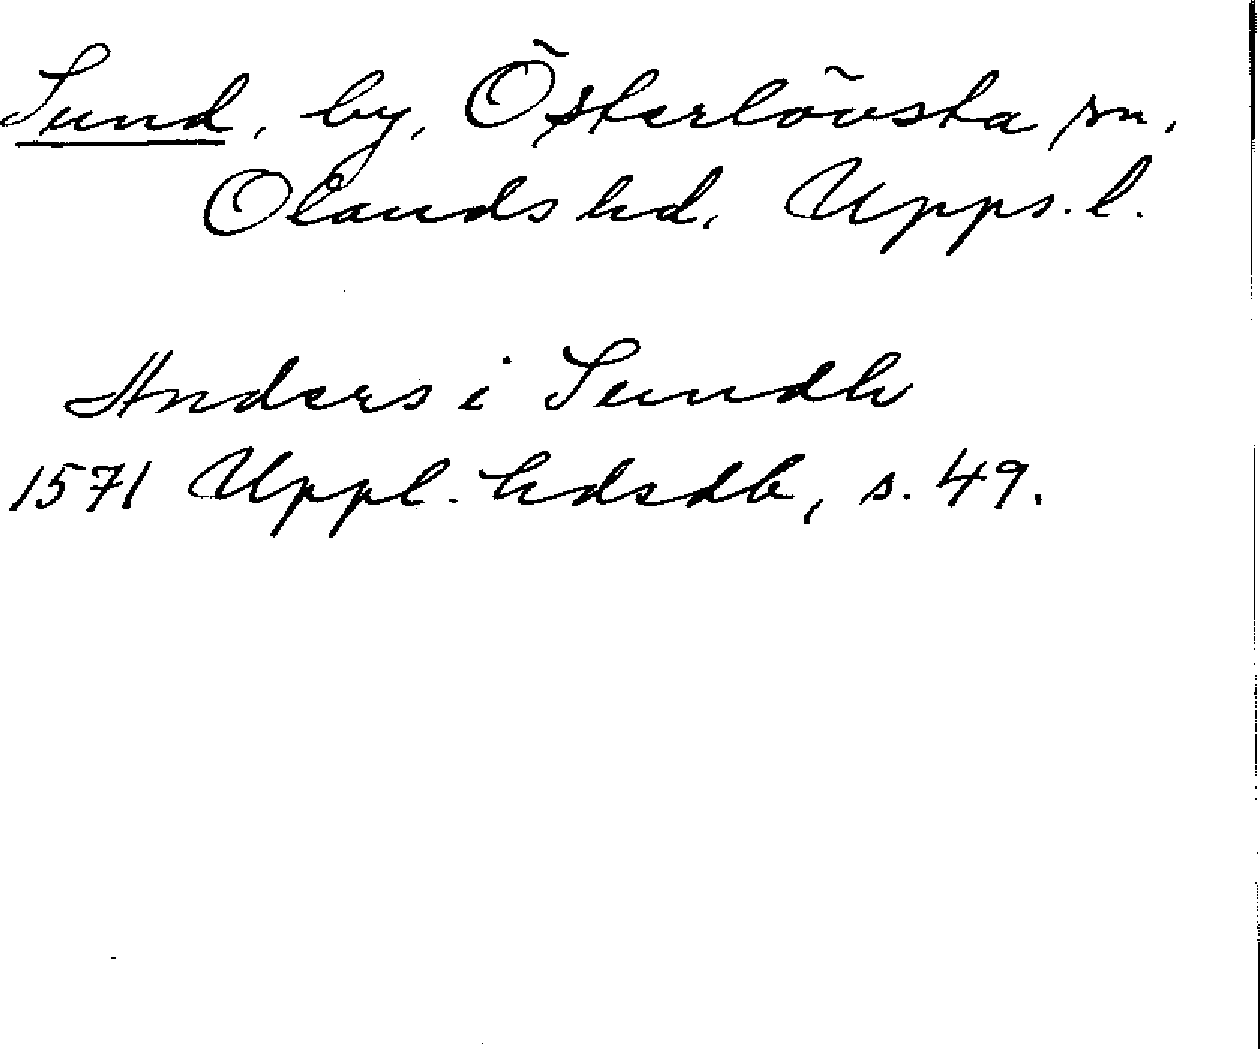 Sund, by, Österlövsta sn,
Olands hd, Upps. l.
Anders i Sundh
1571 Uppl. hdsdb, s. 49.